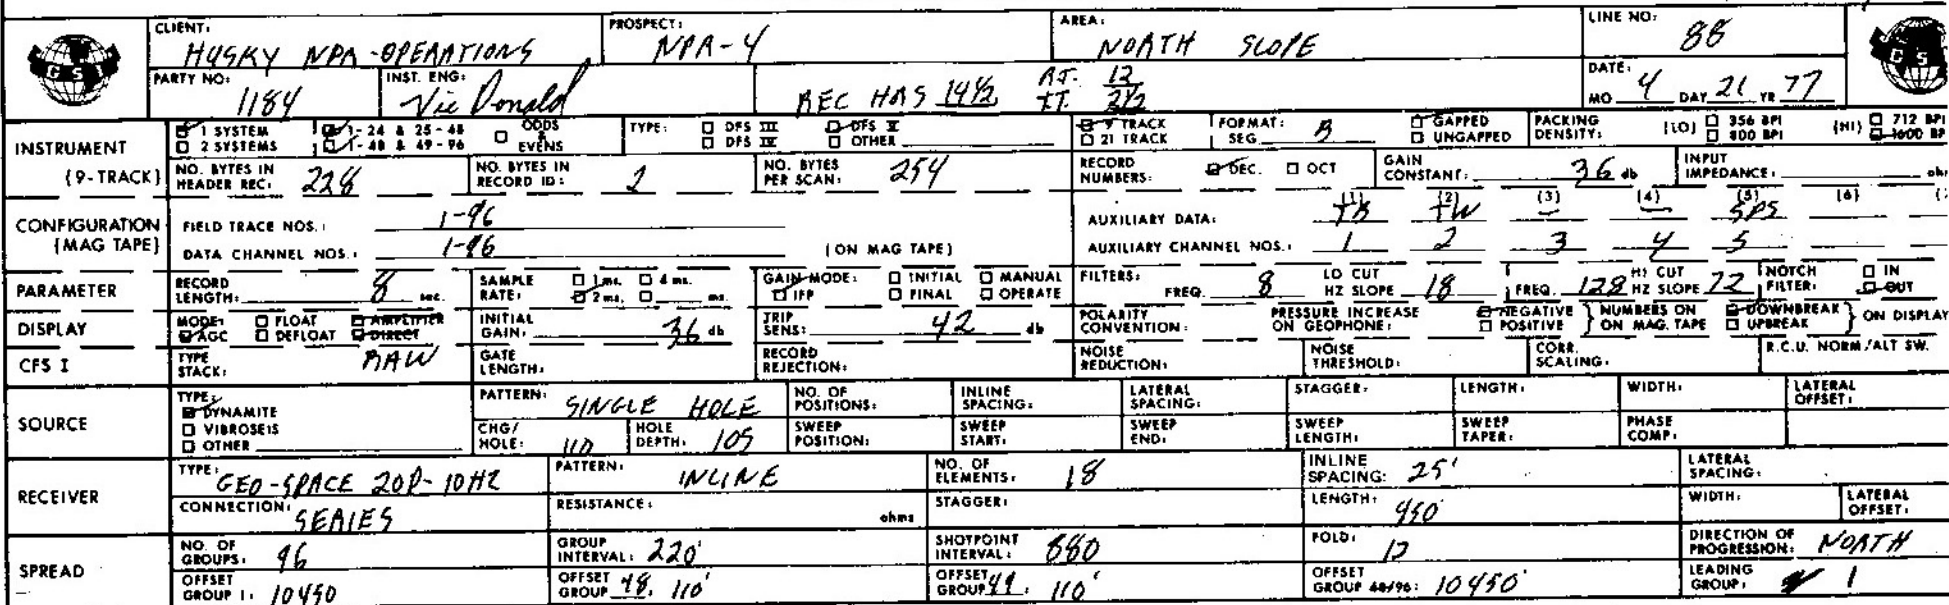 CLIENT: HUSKY NPR-OPERATIONS PROSPECT: NPR-4 AREA: NORTH SLOPE LINE NO: 88
GSI PARTY NO: 1184 INST. ENG: Vic Donald REC HRS 14½ R.T. 12 DATE: MO 4 DAY 21 YR 77 GSI
T.T. 2½
INSTRUMENT 1 SYSTEM 1-24 & 25-48 ODDS & EVENS TYPE: DFS III DFS V 9 TRACK FORMAT: SEG B GAPPED PACKING DENSITY: (LO) 356 BPI (HI) 712 BPI
2 SYSTEMS 1-48 & 49-96 DFS IV OTHER 21 TRACK UNGAPPED 800 BPI 1600 BPI
(9-TRACK) NO. BYTES IN HEADER REC: 228 NO. BYTES IN RECORD ID: 2 NO. BYTES PER SCAN: 254 RECORD NUMBERS: DEC. OCT GAIN CONSTANT: 36 db INPUT IMPEDANCE:
CONFIGURATION (MAG TAPE) FIELD TRACE NOS.: 1-96 AUXILIARY DATA: (1) TB (2) TW (3) — (4) — (5) SPS (6)
DATA CHANNEL NOS.: 1-96 (ON MAG TAPE) AUXILIARY CHANNEL NOS.: 1 2 3 4 5
PARAMETER RECORD LENGTH: 8 sec. SAMPLE RATE: 1 ms. 4 ms. 2 ms. ms. GAIN MODE: INITIAL MANUAL IFP FINAL OPERATE FILTERS: FREQ. 8 LO CUT HZ SLOPE 18 FREQ. 128 HI CUT HZ SLOPE 72 NOTCH FILTER: IN OUT
DISPLAY MODE: FLOAT AMPLIFIER AGC DEFLOAT DIRECT INITIAL GAIN: 36 db TRIP SENS: 42 db POLARITY CONVENTION: PRESSURE INCREASE ON GEOPHONE: NEGATIVE POSITIVE NUMBERS ON ON MAG. TAPE DOWNBREAK UPBREAK ON DISPLAY
CFS I TYPE STACK: RAW GATE LENGTH: RECORD REJECTION: NOISE REDUCTION: NOISE THRESHOLD: CORR. SCALING: R.C.U. NORM/ALT SW.
SOURCE TYPE: DYNAMITE VIBROSEIS OTHER PATTERN: SINGLE HOLE NO. OF POSITIONS: INLINE SPACING: LATERAL SPACING: STAGGER: LENGTH: WIDTH: LATERAL OFFSET:
CHG/HOLE: 110 HOLE DEPTH: 105 SWEEP POSITION: SWEEP START: SWEEP END: SWEEP LENGTH: SWEEP TAPER: PHASE COMP:
RECEIVER TYPE: GEO-SPACE 20D-10HZ PATTERN: INLINE NO. OF ELEMENTS: 18 INLINE SPACING: 25' LATERAL SPACING:
CONNECTION: SERIES RESISTANCE: ohms STAGGER: LENGTH: 450' WIDTH: LATERAL OFFSET:
SPREAD NO. OF GROUPS: 96 GROUP INTERVAL: 220' SHOTPOINT INTERVAL: 880 FOLD: 12 DIRECTION OF PROGRESSION: NORTH
OFFSET GROUP 1: 10450 OFFSET GROUP 48: 110' OFFSET GROUP 49: 110' OFFSET GROUP 48/96: 10450' LEADING GROUP: 1